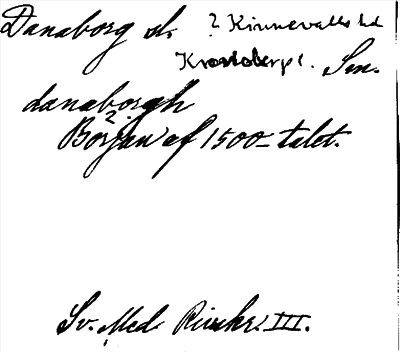 Danaborg sl. ? Kinnevalls hd
Kronobergs l. Sm.
danaborgh
Början af 1500-talet.
Sv. Med. Rimkr. III.